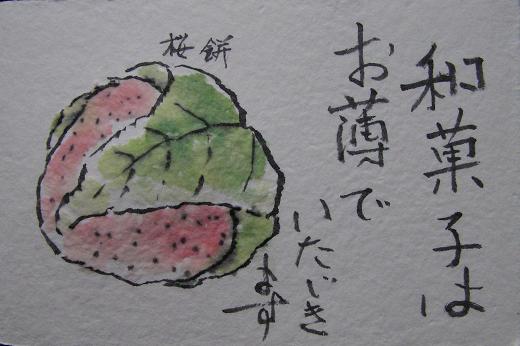 和菓子は
お薄で
いただき
ます
桜餅